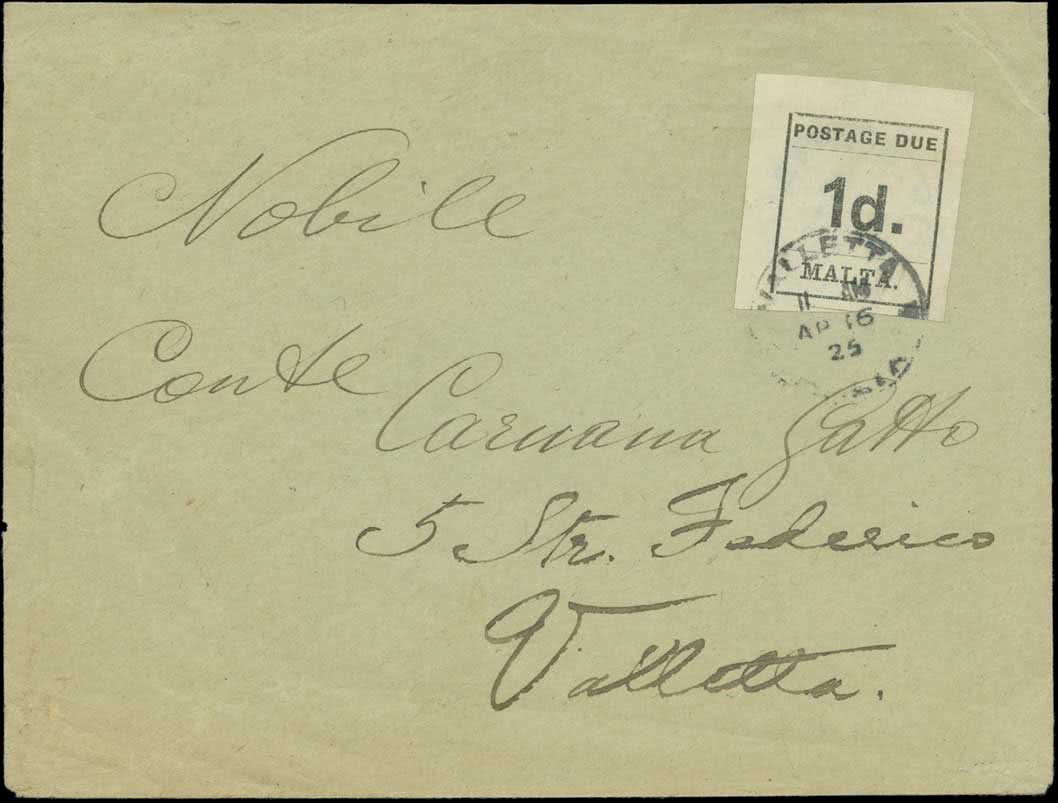 POSTAGE DUE
1d.
MALTA.
VALLETTA
11 AM
AP 16
25
Nobile
Conte
Caruana Gatto
5 Str. Federico
Valletta.